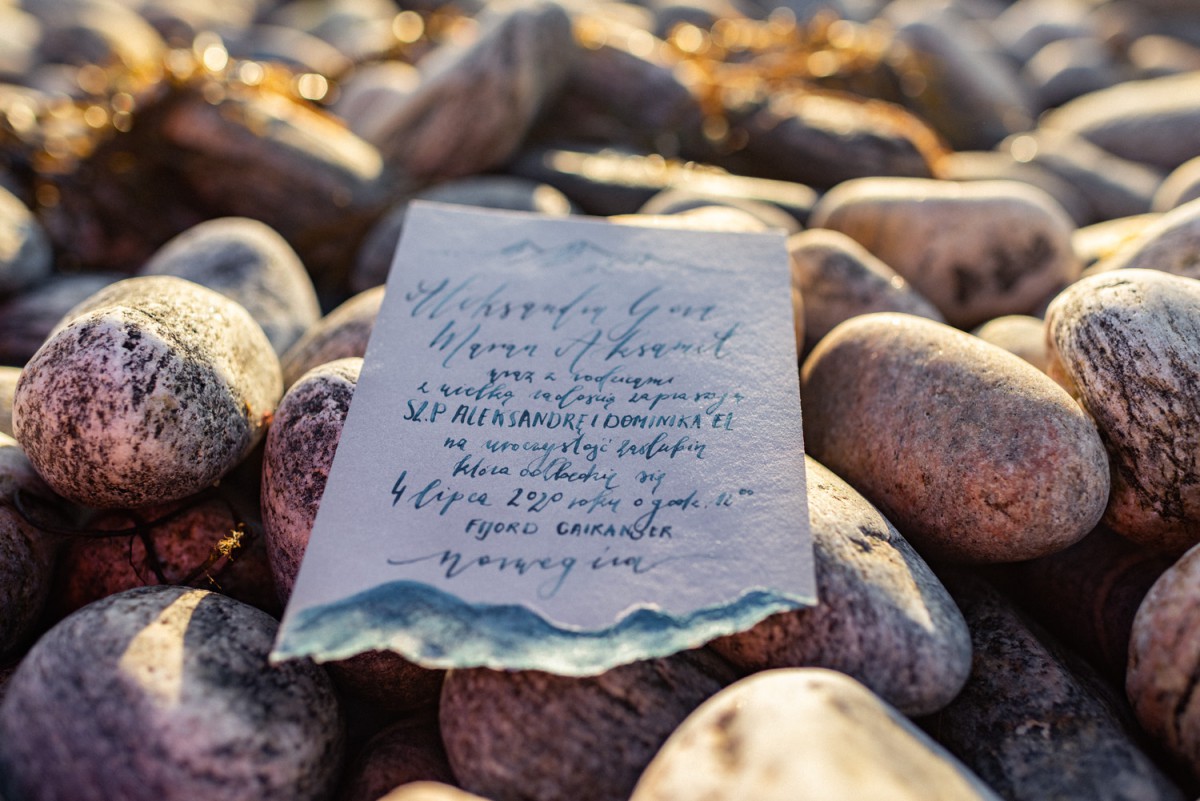 Aleksandra Gora
Maran Aksamit
wraz z rodzicami
z wielką radością zapraszają
SZ.P ALEKSANDRĘ I DOMINIKA EL
na uroczystość zaślubin
która odbędzie się
4 lipca 2020 roku o godz. 12⁰⁰
FIJORD GAIRANGER
Norwegia